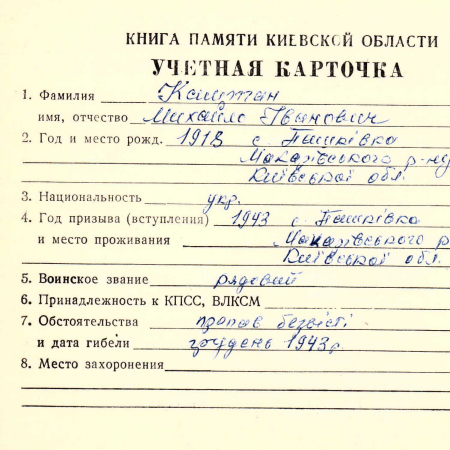 КНИГА ПАМЯТИ КИЕВСКОЙ ОБЛАСТИ
УЧЕТНАЯ КАРТОЧКА
1. Фамилия Каштан
имя, отчество Михайло Іванович
2. Год и место рожд. 1918 с. Пашківка
Макарівського р-ну
Київської обл.
3. Национальность укр.
4. Год призыва (вступления) 1943 с. Пашківка
и место проживания Макарівського р
Київської обл.
5. Воинское звание рядовий
6. Принадлежность к КПСС, ВЛКСМ
7. Обстоятельства пропав безвісті
и дата гибели грудень 1943 р.
8. Место захоронения